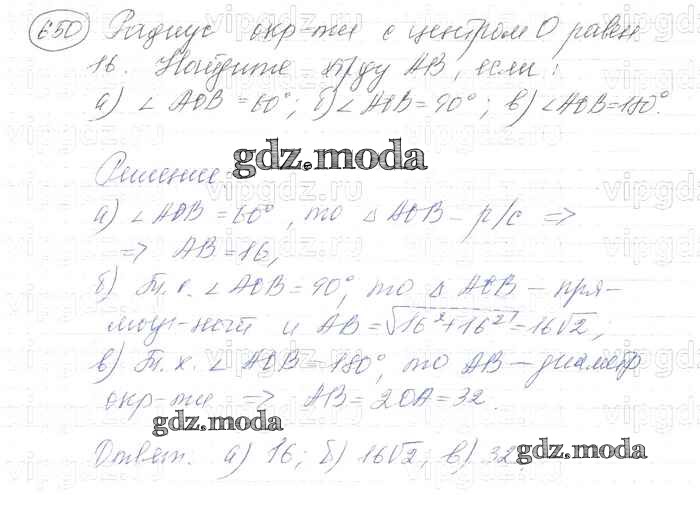 650 Радиус окр-ти с центром O равен
16. Найдите хорду AB, если:
а) ∠AOB = 60°; б) ∠AOB = 90°; в) ∠AOB = 180°.
gdz.moda
Решение:
а) ∠AOB = 60°, то △AOB – р/с =>
=> AB = 16,
б) Т.к. ∠AOB = 90°, то △AOB – пря-
моуг-ный и AB = √16²+16² = 16√2;
в) Т.к. ∠AOB = 180°, то AB – диаметр
окр-ти => AB = 2OA = 32.
gdz.moda
Ответ. а) 16; б) 16√2; в) 32.
gdz.moda